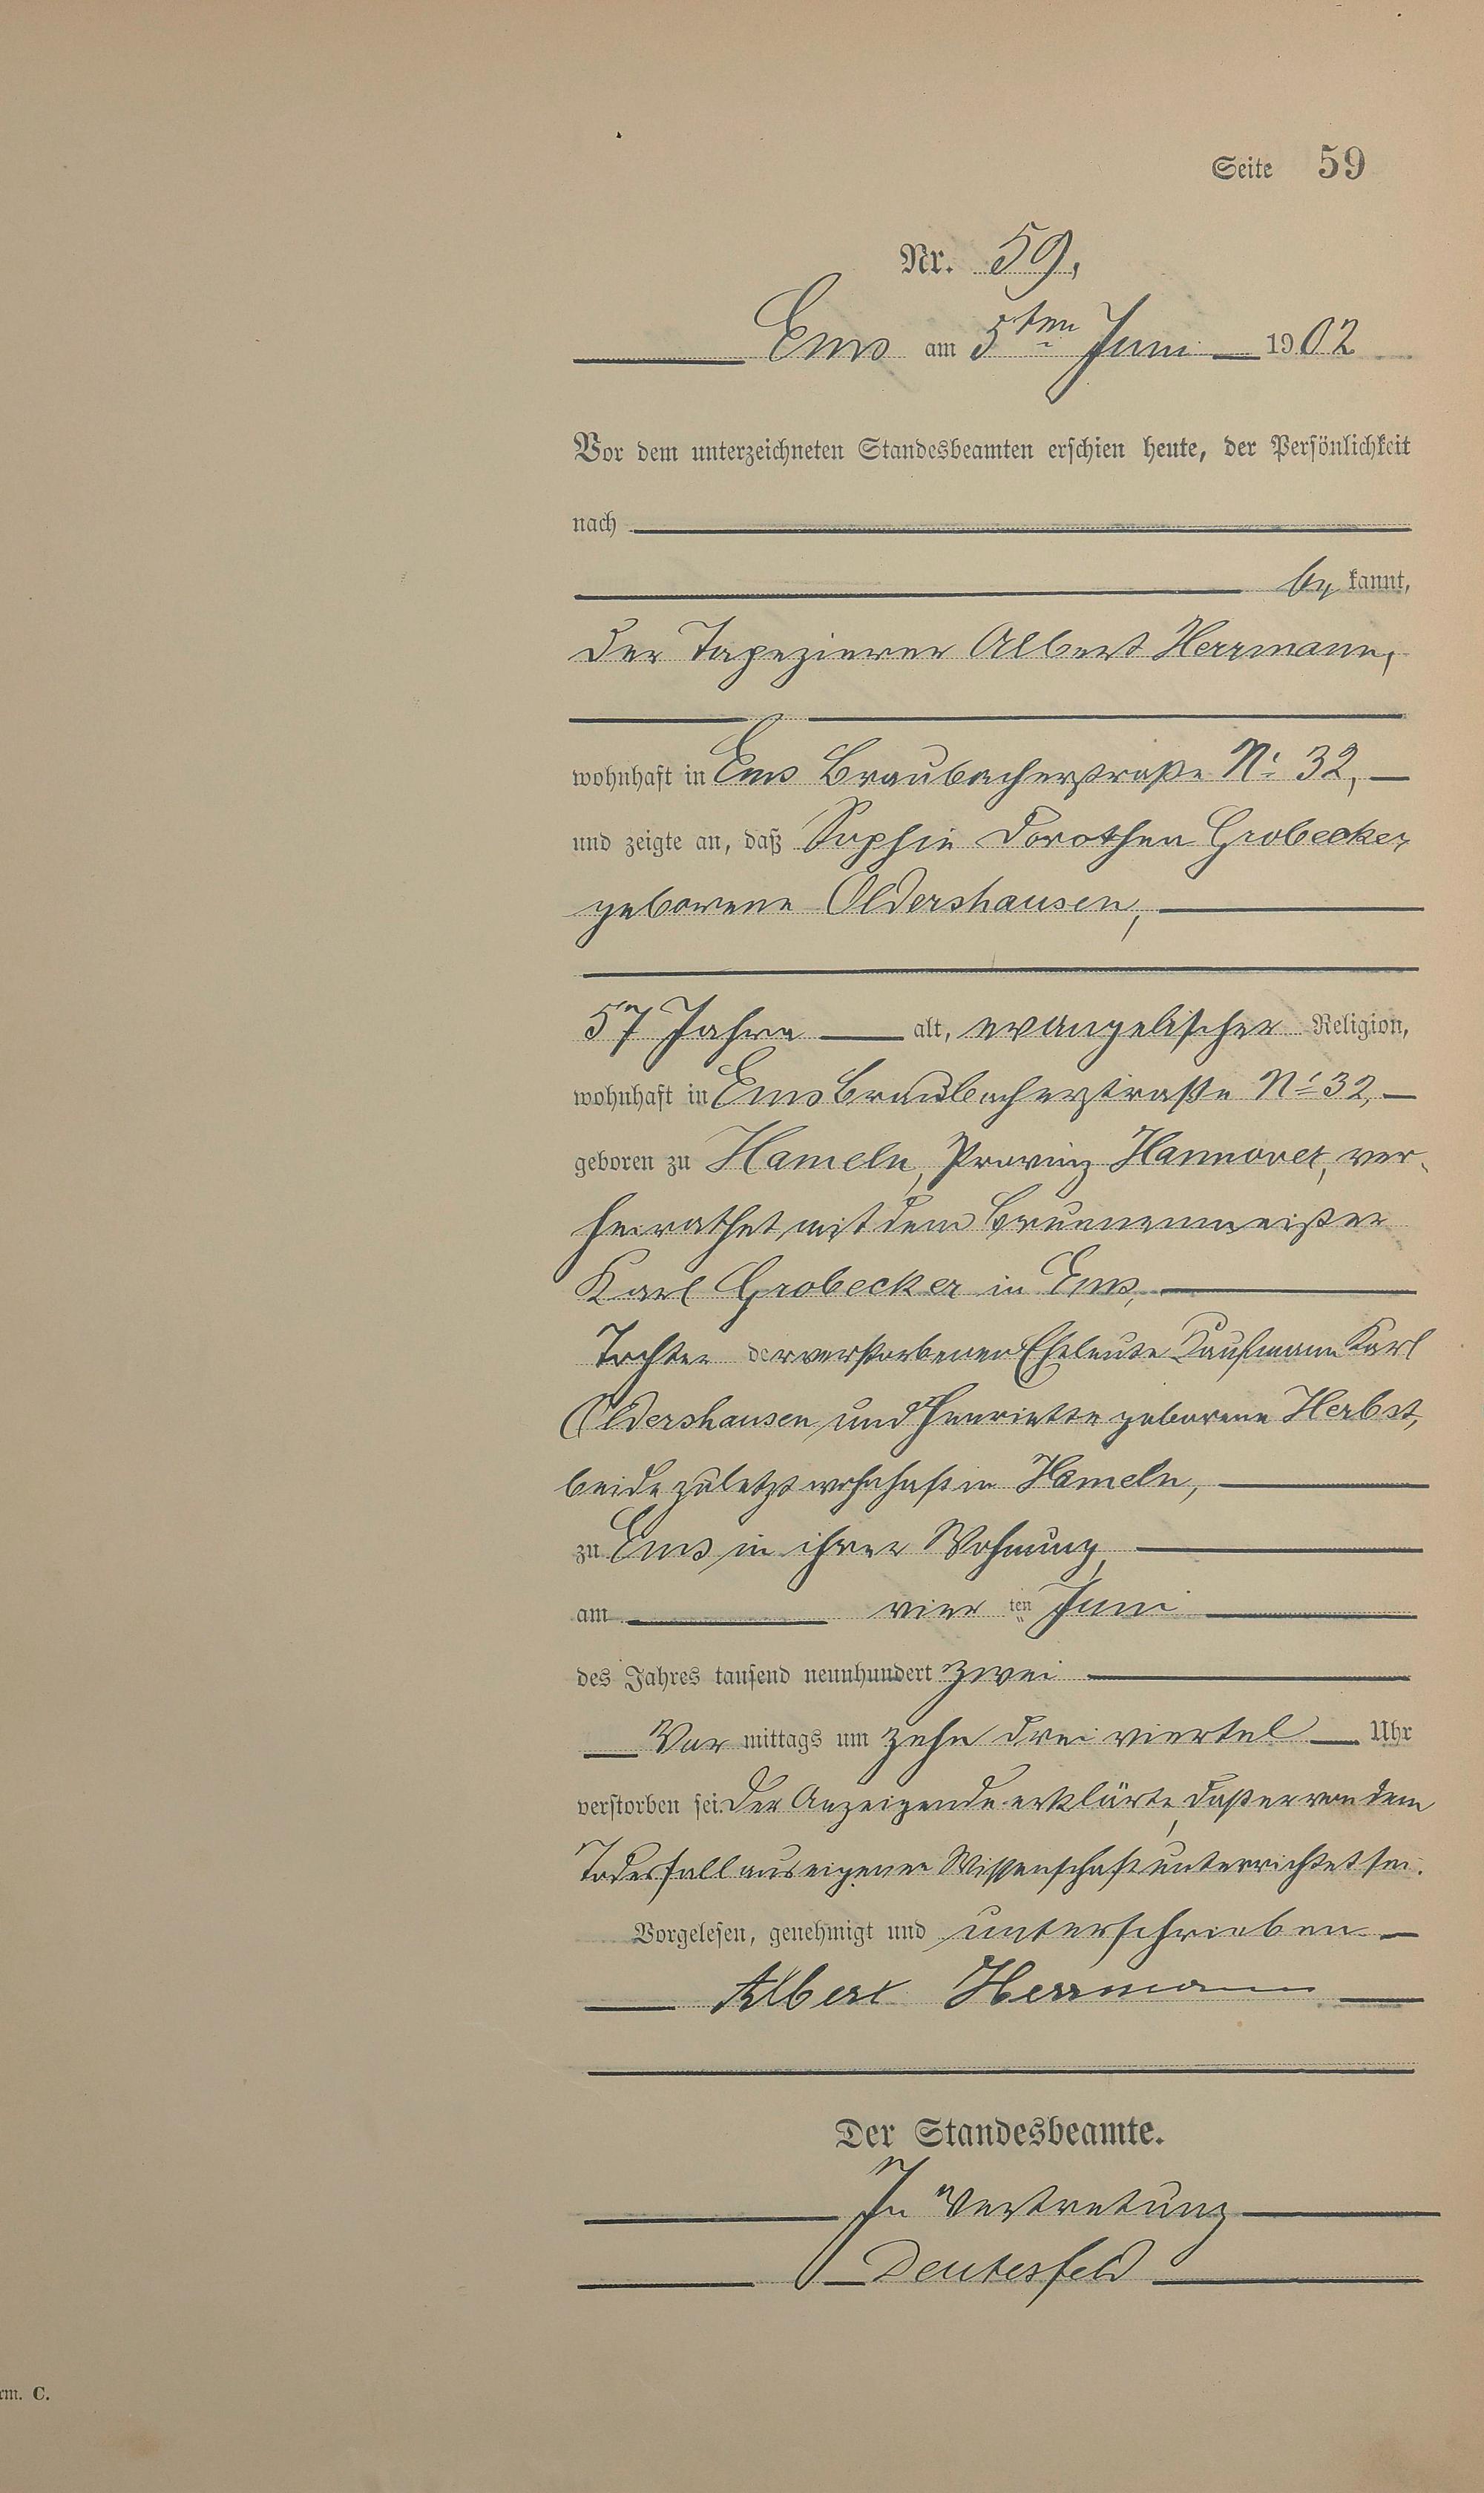 Seite 59
Nr. 59,
Ems am 5ten Juni 1902
Vor dem unterzeichneten Standesbeamten erschien heute, der Persönlichkeit
nach
be kannt,
der Tapezierer Albert Herrmann,
wohnhaft in Ems Braubacherstraße No 32,
und zeigte an, daß Sophie Dorothea Grobecker
geborene Oldershausen,
57 Jahre alt, evangelischer Religion,
wohnhaft in Ems Braubacherstraße No 32,
geboren zu Hameln, Provinz Hannover, ver-
heirathet mit dem Brunnenmeister
Karl Grobecker in Ems,
Tochter der verstorbenen Eheleute Kaufmann Karl
Oldershausen und Henriette geborene Herbst,
beide zuletzt wohnhaft in Hameln,
zu Ems in ihrer Wohnung,
am vier ten Juni
des Jahres tausend neunhundert zwei
Vor mittags um zehn drei viertel Uhr
verstorben sei. Der Anzeigende erklärte, daß er von dem
Todesfall aus eigener Wissenschaft unterrichtet sei.
Vorgelesen, genehmigt und unterschrieben
Albert Herrmann
Der Standesbeamte.
In Vertretung
Deutesfeld
rm. C.